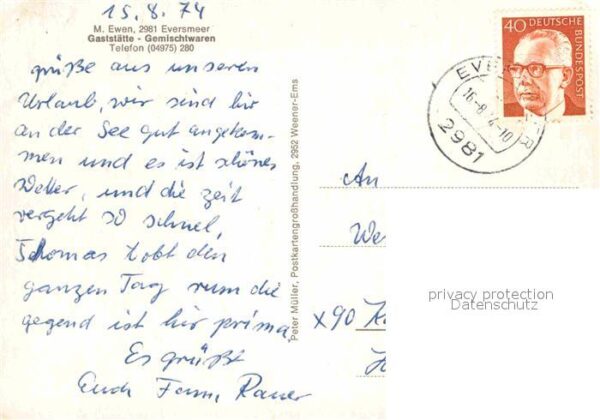 15.8.74
M. Ewen, 2981 Eversmeer
Gaststätte - Gemischtwaren
Telefon (04975) 280
grüße aus unseren
Urlaub, wir sind hir
an der See gut angekom-
men und es ist schönes
Wetter, und die zeit
vergeht so schnel,
Thomas tobt den
ganzen Tag rum die
gegend ist hir prima
Es grüßt
Euch Fam. Rauer
Peter Müller, Postkartengroßhandlung, 2952 Weener-Ems
40 DEUTSCHE
BUNDESPOST
2981
An
We
x90
privacy protection
Datenschutz